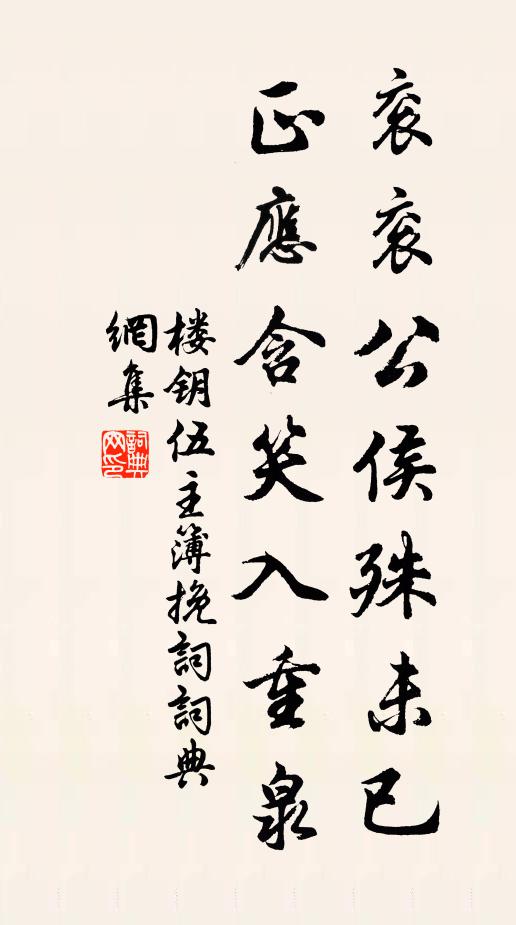 衮衮公侯殊未已
正應含笑入重泉
楼钥伍主簿挽詞詞典
網集
詞典
网印